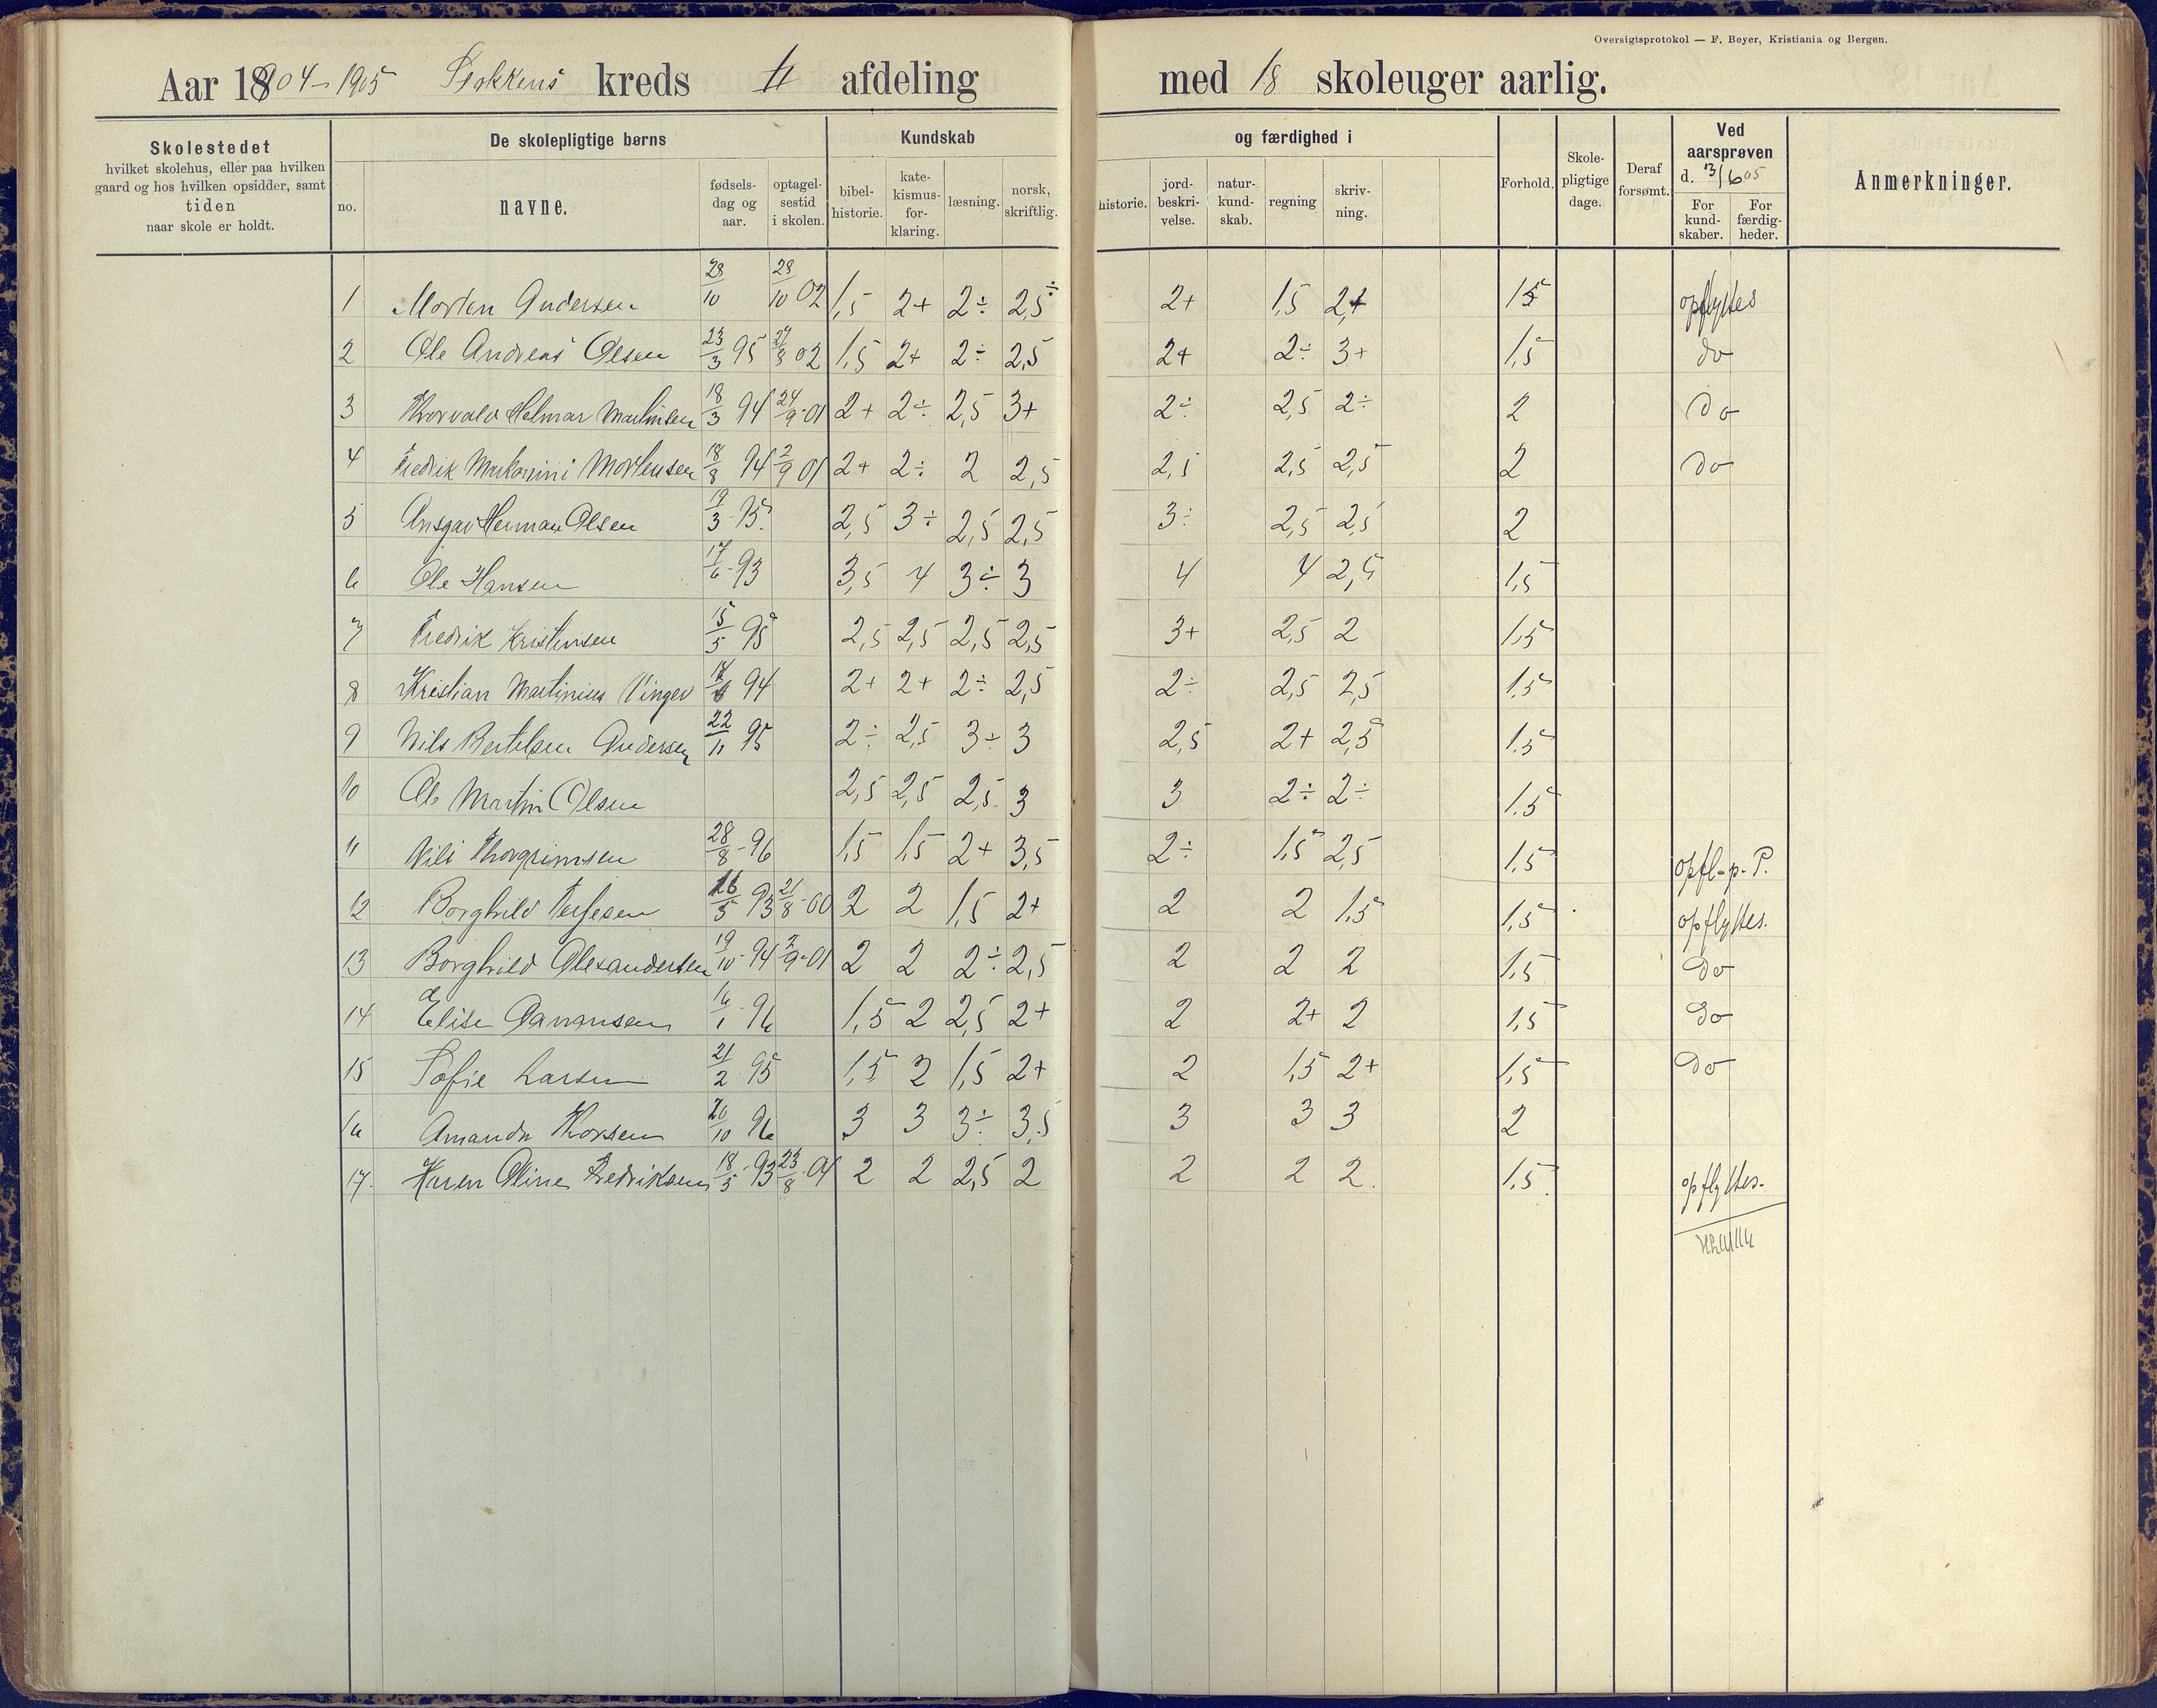 Oversigtsprotokol — F. Beyer, Kristiania og Bergen.
Aar 1904-1905 Stokkens kreds II afdeling med 18 skoleuger aarlig.
Skolestedet hvilket skolehus, eller paa hvilken gaard og hos hvilken opsidder, samt tiden naar skole er holdt.
De skolepligtige børns
no. navne. fødsels-dag og aar. optagel-sestid i skolen.
Kundskab og færdighed i
bibel-historie. kate-kismus-for-klaring. læsning. norsk, skriftlig. historie. jord-beskri-velse. natur-kund-skab. regning skriv-ning.
Forhold. Skole-pligtige dage. Deraf forsømt.
Ved aarsprøven d. 3/6 05
For kund-skaber. For færdig-heder.
Anmerkninger.
1 Morten Andersen 28/10 28/10 02 1,5 2+ 2÷ 2,5÷ 2+ 1,5 2+ 1,5 opflyttes
2 Ole Andreas Olsen 23/3 95 27/8 02 1,5 2+ 2÷ 2,5 2+ 2÷ 3+ 1,5 do
3 Thorvald Helmar Martinsen 18/3 94 24/9-01 2+ 2÷ 2,5 3+ 2÷ 2,5 2÷ 2 do
4 Fredrik Mortensen 18/8 94 2/9 01 2+ 2÷ 2 2,5 2,5 2,5 2,5 2 do
5 Ansgar Herman Olsen 19/3-95 2,5 3÷ 2,5 2,5 3÷ 2,5 2,5 2
6 Ole Hansen 17/6-93 3,5 4 3÷ 3 4 4 2,5 1,5
7 Fredrik Kristensen 15/5 95 2,5 2,5 2,5 2,5 3+ 2,5 2 1,5
8 Kristian Martinius Vinger 94 2+ 2+ 2÷ 2,5 2÷ 2,5 2,5 1,5
9 Nils Bertelsen Andersen 22/11 95 2÷ 2,5 3÷ 3 2,5 2+ 2,5 1,5
10 Ole Martin Olsen 2,5 2,5 2,5 3 3 2÷ 2÷ 1,5
11 Nils Thorgrimsen 28/8-96 1,5 1,5 2+ 3,5 2÷ 1,5 2,5 1,5 opfl-p. P.
12 Borghild Terjesen 26/5 93 21/8-00 2 2 1,5 2+ 2 2 1,5 1,5 opflyttes.
13 Borghild Alexandersen 19/10-94 2/9-01 2 2 2÷ 2,5 2 2 2 1,5 do
14 Elise Aanonsen 16/1-96 1,5 2 2,5 2+ 2 2+ 2 1,5 do
15 Sofie Larsen 21/2 95 1,5 2 1,5 2+ 2 1,5 2+ 1,5 do
16 Amanda Thorsen 20/10 96 3 3 3÷ 3,5 3 3 3 2
17. Karen Oline Fredriksen 18/5-93 23/8-01 2 2 2,5 2 2 2 2. 1,5. opflyttes.